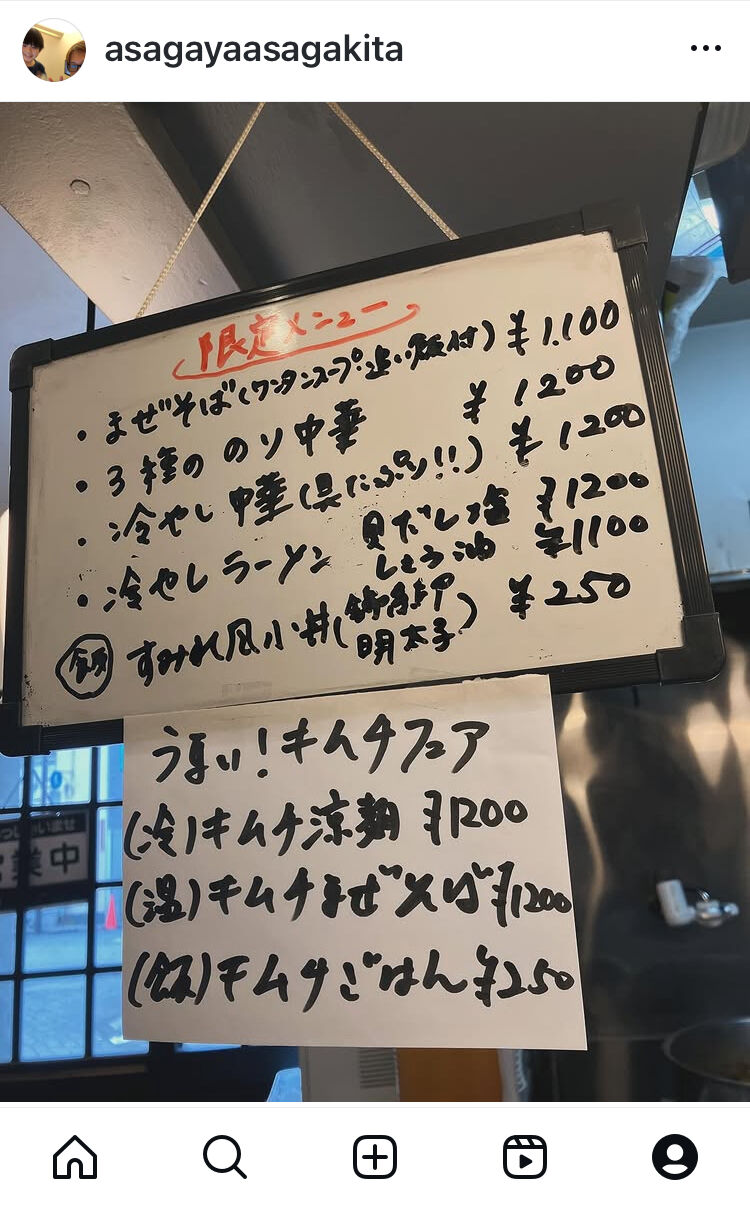 asagayaasagakita
限定メニュー
・まぜそば(ワンタンスープ・追い飯付) ¥1,100
・3種ののり中華 ¥1200
・冷やし中華(具たっぷり!!) ¥1200
・冷やしラーメン 貝だし塩 ¥1200
しょう油 ¥1100
飯 すみれ風小丼( ¥250
明太子)
うまい!キムチフェア
(冷)キムチ涼麺 ¥1200
(温)キムチまぜそば ¥1200
(飯)キムチごはん ¥250
業中